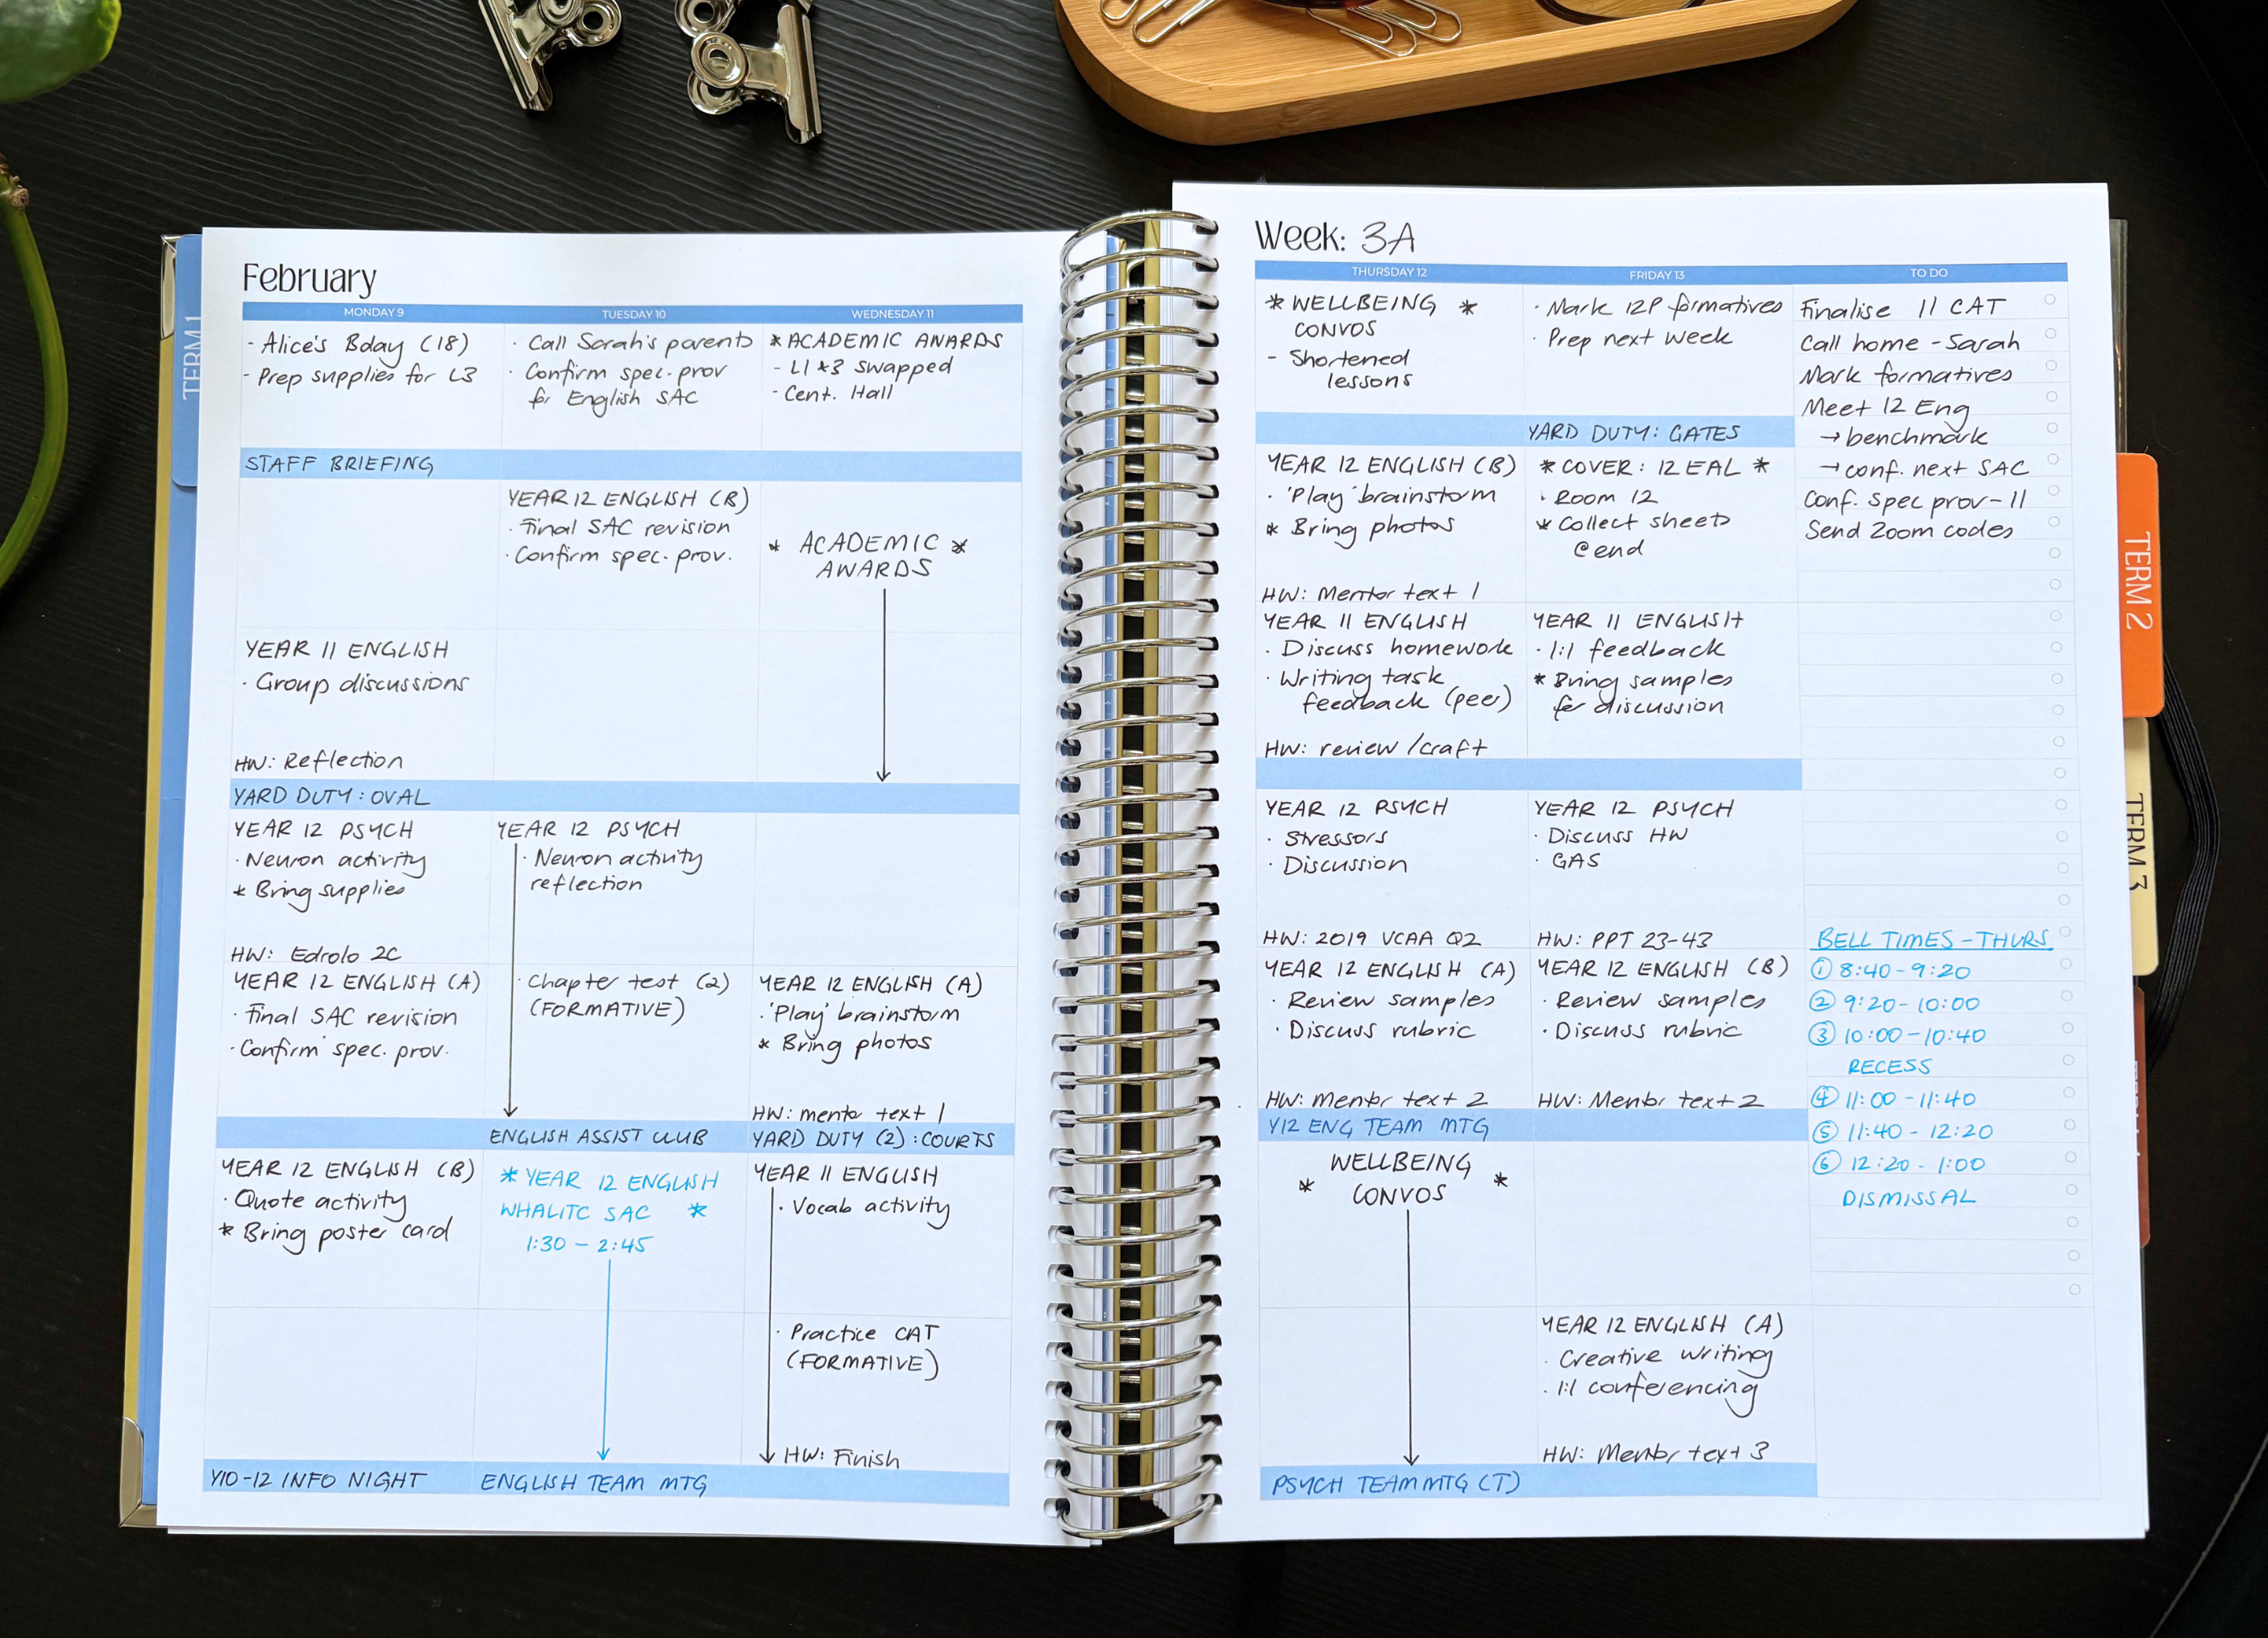 February
MONDAY 9
- Alice's Bday (18)
- Prep supplies for L3
STAFF BRIEFING
YEAR 11 ENGLISH
· Group discussions
HW: Reflection
YARD DUTY: OVAL
YEAR 12 PSYCH
· Neuron activity
* Bring supplies
HW: Edrolo 2C
YEAR 12 ENGLISH (A)
· Final SAC revision
· Confirm spec. prov.
YEAR 12 ENGLISH (B)
· Quote activity
* Bring poster card
Y10-12 INFO NIGHT
TUESDAY 10
· Call Sarah's parents
· Confirm spec. prov
for English SAC
YEAR 12 ENGLISH (B)
· Final SAC revision
· Confirm spec. prov.
YEAR 12 PSYCH
· Neuron activity
reflection
· Chapter test (2)
(FORMATIVE)
ENGLISH ASSIST CLUB
* YEAR 12 ENGLISH
WHALITC SAC *
1:30 - 2:45
ENGLISH TEAM MTG
WEDNESDAY 11
* ACADEMIC AWARDS
- L1 & 3 swapped
- Cent. Hall
* ACADEMIC *
AWARDS
YEAR 12 ENGLISH (A)
· 'Play' brainstorm
* Bring photos
HW: mentor text 1
YARD DUTY (2): COURTS
YEAR 11 ENGLISH
· Vocab activity
· Practice CAT
(FORMATIVE)
HW: Finish
Week: 3A
THURSDAY 12
* WELLBEING *
CONVOS
- Shortened
lessons
YEAR 12 ENGLISH (B)
· 'Play' brainstorm
* Bring photos
HW: Mentor text 1
YEAR 11 ENGLISH
· Discuss homework
· Writing task
feedback (peer)
HW: review/craft
YEAR 12 PSYCH
· Stressors
· Discussion
HW: 2019 VCAA Q2
YEAR 12 ENGLISH (A)
· Review samples
· Discuss rubric
HW: mentor text 2
Y12 ENG TEAM MTG
WELLBEING
* CONVOS *
PSYCH TEAM MTG (T)
FRIDAY 13
· Mark 12P formatives
· Prep next week
YARD DUTY: GATES
* COVER: 12 EAL *
· Room 12
* Collect sheets
@ end
YEAR 11 ENGLISH
· 1:1 feedback
* Bring samples
for discussion
YEAR 12 PSYCH
· Discuss HW
· GAS
HW: PPT 23-43
YEAR 12 ENGLISH (B)
· Review samples
· Discuss rubric
HW: Mentor text 2
YEAR 12 ENGLISH (A)
· Creative writing
· 1:1 conferencing
HW: Mentor text 3
TO DO
Finalise 11 CAT
Call home - Sarah
Mark formatives
Meet 12 Eng
→ benchmark
→ conf. next SAC
Conf. spec prov - 11
Send Zoom codes
BELL TIMES - THURS
① 8:40 - 9:20
② 9:20 - 10:00
③ 10:00 - 10:40
RECESS
④ 11:00 - 11:40
⑤ 11:40 - 12:20
⑥ 12:20 - 1:00
DISMISSAL
TERM 1
TERM 2
TERM 3